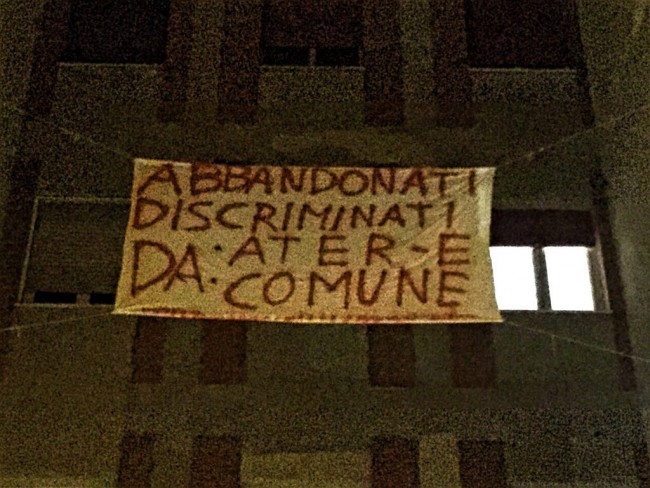 ABBANDONATI
DISCRIMINATI
DA • ATER-E
• COMUNE